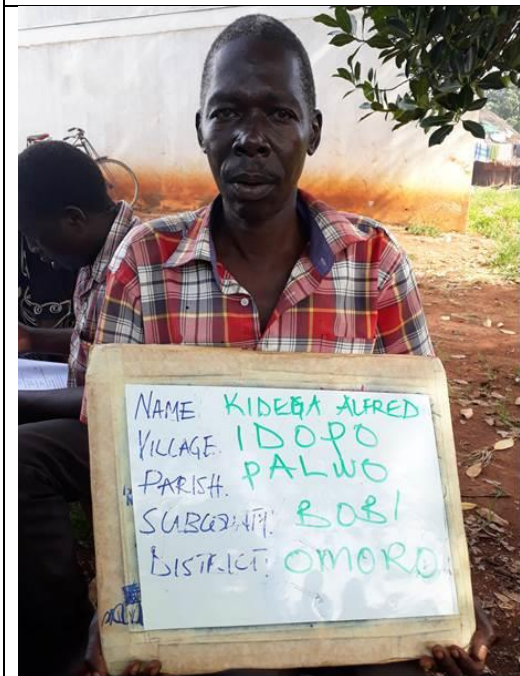 NAME KIDEGA ALFRED
VILLAGE. IDOPO
PARISH. PALWO
SUBCOUNTY: BOBI
DISTRICT: OMORO